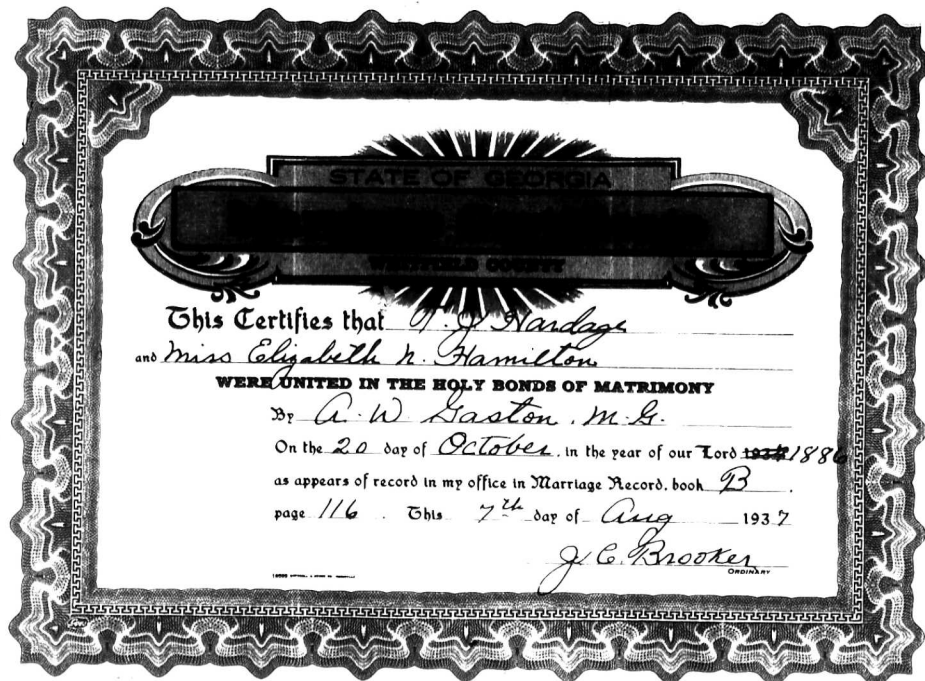 STATE OF GEORGIA
WHITFIELD COUNTY
This Certifies that T. J. Hardage
and Miss Elizabeth N. Hamilton
WERE UNITED IN THE HOLY BONDS OF MATRIMONY
By A. W. Gaston, M. G.
On the 20 day of October, in the year of our Lord 1886
as appears of record in my office in Marriage Record, book B.
page 116. This 7th day of Aug 1937
J. C. Brooker
ORDINARY